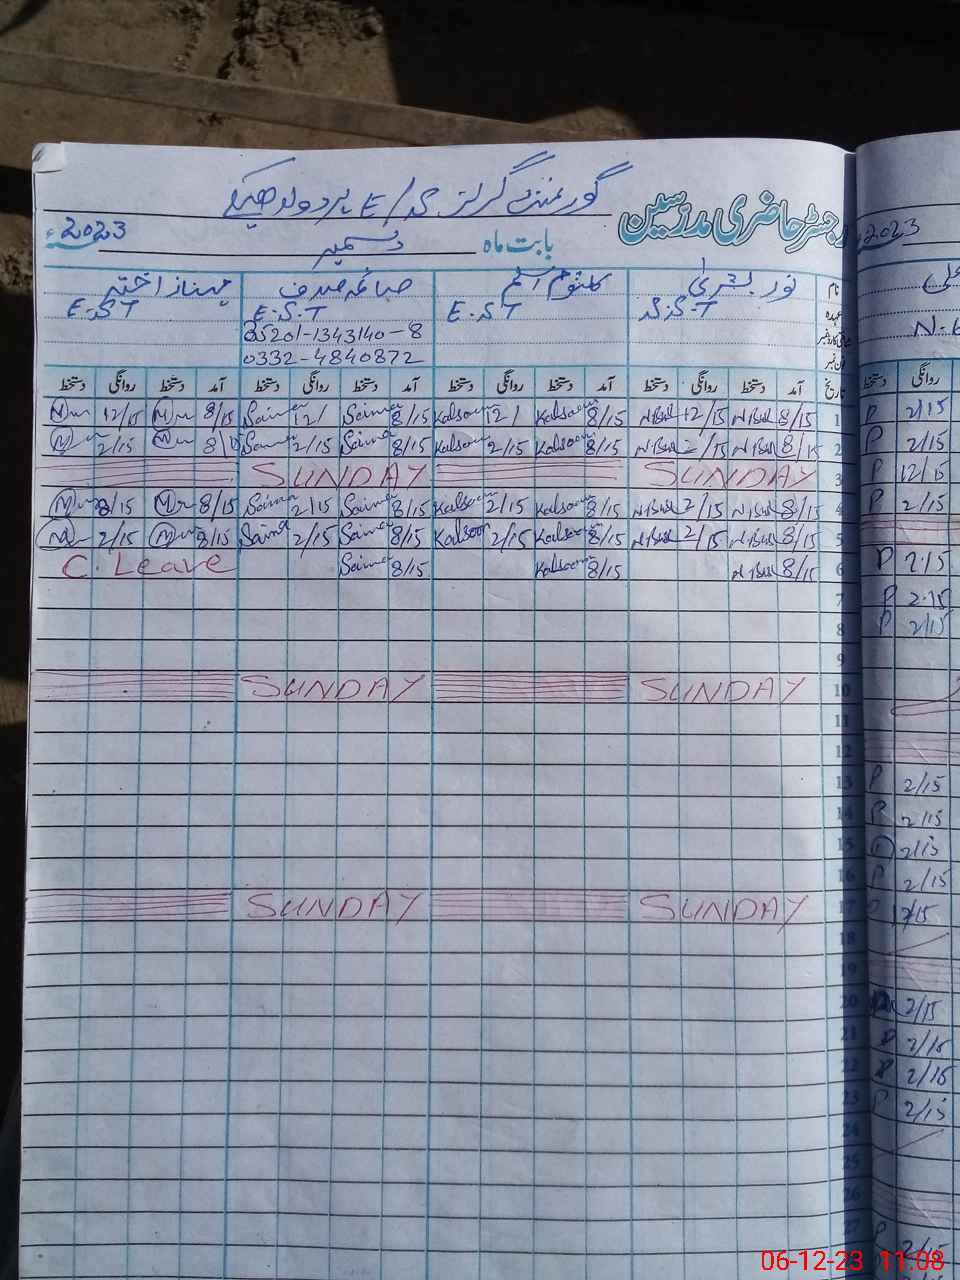 رجسٹر حاضری مدرسین گورنمنٹ گرلز
بابت ماہ دسمبر 2023ء 2023
نام نور بشریٰ کلثوم اسلم صائمہ صدف مہناز اختر
عہدہ S.S.T E.S.T E.S.T E.S.T
35201-1343140-8
0332-4840872
تاریخ آمد دستخط روانگی دستخط آمد دستخط روانگی دستخط آمد دستخط روانگی دستخط آمد دستخط روانگی دستخط روانگی دستخط
1 8/15 N.Bus 12/15 N.Bus 8/15 Kalsoom 12/ Kalsoom 8/15 Saima 12/ Saima 8/15 12/15 2/15 P
2 8/15 N.Bus N.Bus 8/15 Kalsoom 2/15 Kalsoom 8/15 Saima 2/15 Saima 2/15 2/15 P
3 SUNDAY SUNDAY 12/15 P
4 8/15 N.Bus 2/15 N.Bus 8/15 Kalsoom 2/15 Kalsoom 8/15 Saima 2/15 Saima 8/15 2/15 P
5 8/15 N.Bus 2/15 N.Bus 8/15 Kalsoom 2/15 Kalsoom 8/15 Saima 2/15 Saima 8/15 2/15
6 8/15 N.Bus 8/15 Kalsoom 8/15 Saima C. Leave 2.15 P
7 2.15 P
8 2/15 P
9
10 SUNDAY SUNDAY
11
12
13 2/15 P
14 2/15 P
15 2/15
16 2/15 P
17 SUNDAY SUNDAY
18
19
20 2/15
21 2/15 P
22 2/15 P
23 2/15 P
24
25
26
27 P
2/15
06-12-23 11:08